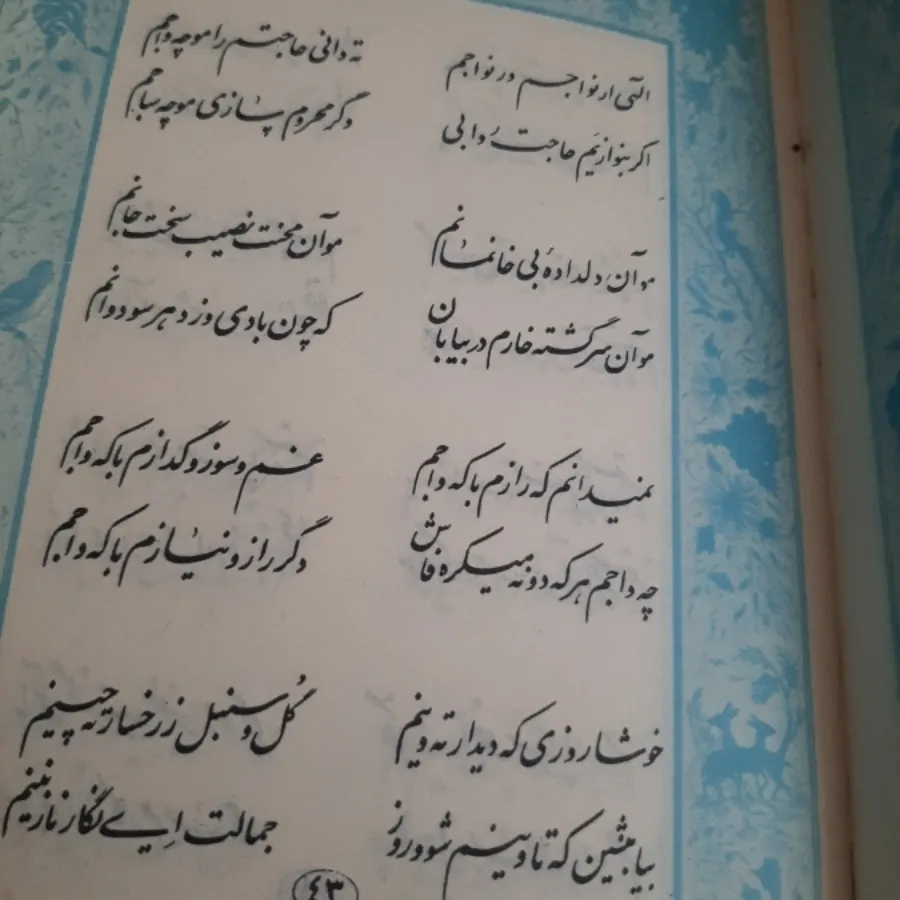 الهی ار نواجم ور نواجم    ته دانی حاجتم را موچه واجم
اگر بنوازیم حاجت روا بی    وگر محروم سازی موچه ساجم
مو آن دلدادهٔ بی خانمانم    مو آن محنت نصیب سخت جانم
مو آن سرگشته خارم در بیابان    که چون بادی وزد هر سو دوانم
نمیدانم که رازم با که واجم    غم و سوز و گدازم با که واجم
چه واجم هر که دونه میکره فاش    دگر راز و نیازم با که واجم
خوشا روزی که دیدار ته وینم    گل و سنبل ز رخسار ته چینم
بیا بنشین که تا وینم شو و روز    جمالت ایے نگار نازنینم
٤٣